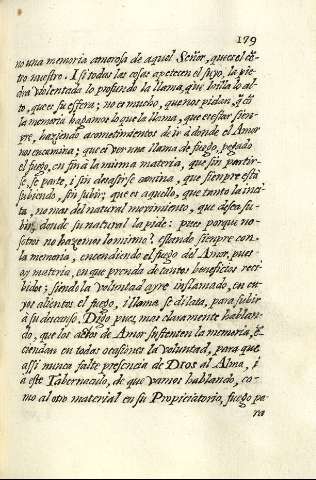 179
no una memoria amorosa de aquel Señor, que es el cẽ-
tro nuestro. I si todas las cosas apetecen el suyo, la pie-
dra violentada lo profundo, la llama, que brilla lo al-
to, que es su esfera; no es mucho, que nos pidan, q̃ cõ
la memoria hagamos lo que la llama, que es estar siem-
pre, haziendo acometimientos de ir a donde el Amor
nos encamina; que es ver una llama de fuego, pegado
el fuego, en fin à la misma materia, que sin partir-
se, se parte, i sin desasirse camina, que siempre està
subiendo, sin subir; que es aquello, que tanto la inci-
ta, no mas del natural movimiento, que desea su-
bir, donde su natural la pide: pues porque no-
sotros no hazemos lo mismo? estando siempre con
la memoria, encendiendo el fuego del Amor, pues
ay materia, en que prenda de tantos beneficios reci-
bidos; siendo la voluntad ayre inflamado, en cu-
yos alientos el fuego, i llama se dilata, para subir
à su descanso. Digo pues, mas claramente hablan-
do, que los actos de Amor sustenten la memoria, ẽ-
ciendan en todas ocasiones la voluntad, para que
assi nunca falte presencia de Dios al Alma, i
à este Tabernaculo, de que vamos hablando, co-
mo al otro material en su Propiciatorio, fuego pe-
ra